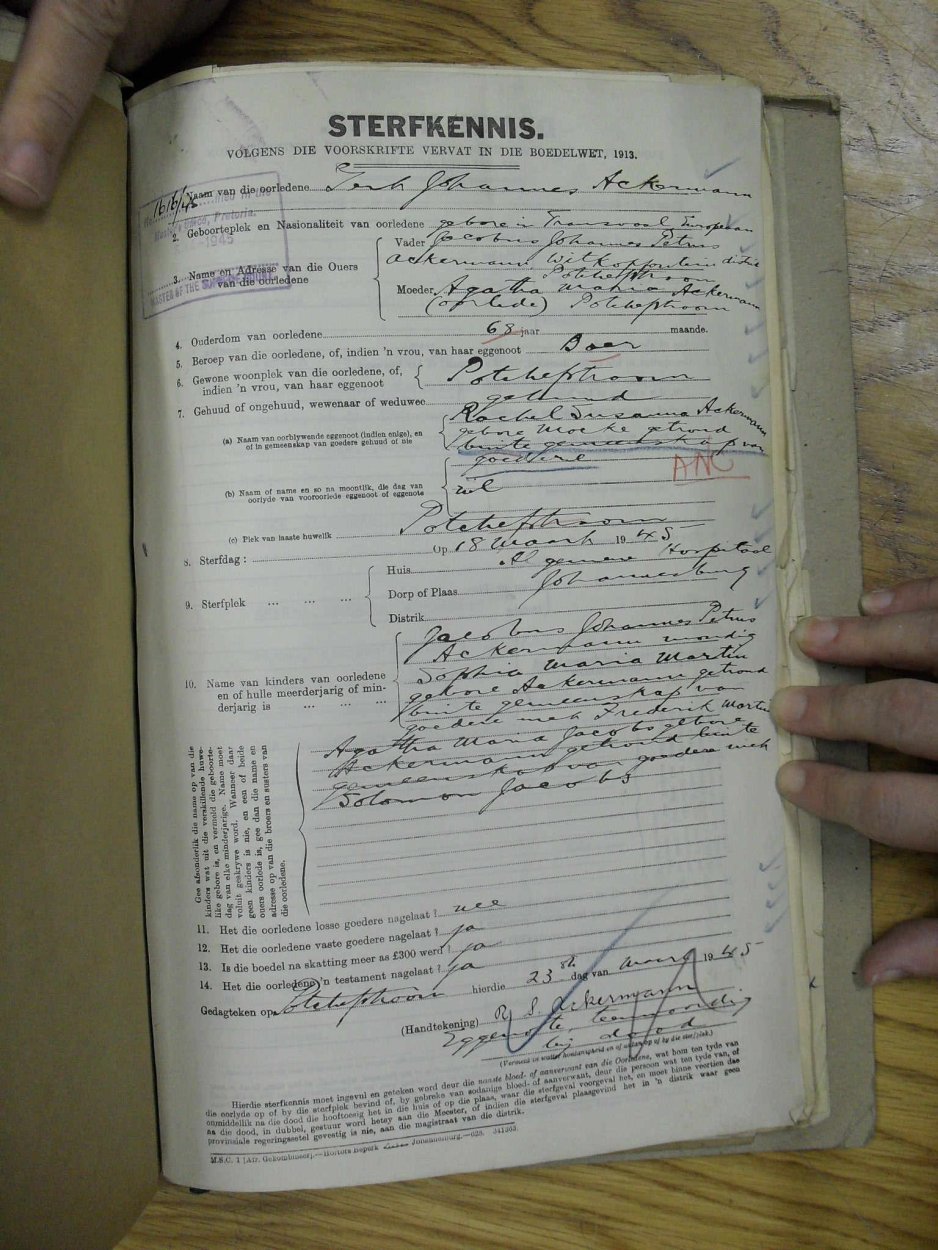 STERFKENNIS.
VOLGENS DIE VOORSKRIFTE VERVAT IN DIE BOEDELWET, 1913.
1616/45
Naam van die oorledene Johannes Ackermann
Pretoria.
1945
MASTER OF THE
2. Geboorteplek en Nasionaliteit van oorledene gebore in Transvaal European
3. Name en Adresse van die Ouers
van die oorledene
Vader Jacobus Johannes Petrus
Ackermann Witkopfontein distr
Potchefstroom
Moeder Agatha Maria Ackermann
(oorlede) Potchefstroom
4. Ouderdom van oorledene 68 jaar maande.
5. Beroep van die oorledene, of, indien 'n vrou, van haar eggenoot Boer
6. Gewone woonplek van die oorledene, of,
indien 'n vrou, van haar eggenoot
Potchefstroom
7. Gehuud of ongehuud, wewenaar of weduwee getroud
(a) Naam van oorblywende eggenoot (indien enige), en
of in gemeenskap van goedere gehuud of nie
Rachel Susanna Ackermann
gebore Mocke getroud
buite gemeenskap van
goedere
ANC
(b) Naam of name en so na moontlik, die dag van
oorlyde van vooroorlede eggenoot of eggenote
nil
(c) Plek van laaste huwelik Potchefstroom
8. Sterfdag : Op 18 Maart 1945
9. Sterfplek ... ... ...
Huis Algemene Hospitaal
Dorp of Plaas Johannesburg
Distrik
10. Name van kinders van oorledene
en of hulle meerderjarig of min-
derjarig is ... ... ...
Jacobus Johannes Petrus
Ackermann mondig
Sophia Maria Martin
gebore Ackermann getroud
buite gemeenskap van
goedere met Frederik Martin
Agatha Maria Jacobs gebore
Ackermann getroud buite
gemeenskap van goedere met
Solomon Jacobs
Gee afsonderlik die name op van die
kinders wat uit die verskillende huwe-
like gebore is, en vermeld die geboorte-
dag van elke minderjarige. Name moet
voluit geskrywe word. Wanneer daar
geen kinders is nie, en een of beide
ouers oorlede is, gee dan die name en
adresse op van die broers en susters van
die oorledene.
11. Het die oorledene losse goedere nagelaat ? nee
12. Het die oorledene vaste goedere nagelaat ? ja
13. Is die boedel na skatting meer as £300 werd ? ja
14. Het die oorledene 'n testament nagelaat ? ja
Gedagteken op Potchefstroom hierdie 23ste dag van Maart 1945
(Handtekening) R. S. Ackermann
Eggenote, teenwoordig
by dood
(Vermeld in watter hoedanigheid en of aldan op of by die sterfplek.)
Hierdie sterfkennis moet ingevul en geteken word deur die naaste bloed- of aanverwant van die Oorledene, wat hom ten tyde van
die oorlyde op of by die sterfplek bevind of, by gebreke van sodanige bloed- of aanverwant, deur die persoon wat ten tyde van, of
onmiddellik na die dood die hooftoesig het in die huis of op die plaas, waar die sterfgeval voorgeval het, en moet binne veertien dae
na die dood, in dubbel, gestuur word hetsy aan die Meester, of indien die sterfgeval plaasgevind het in 'n distrik waar geen
provinsiale regeringssetel gevestig is nie, aan die magistraat van die distrik.
M.S.C. 1 [Afr. Gekombineer].—Hortors Beperk Johannesburg.—628. 341363.